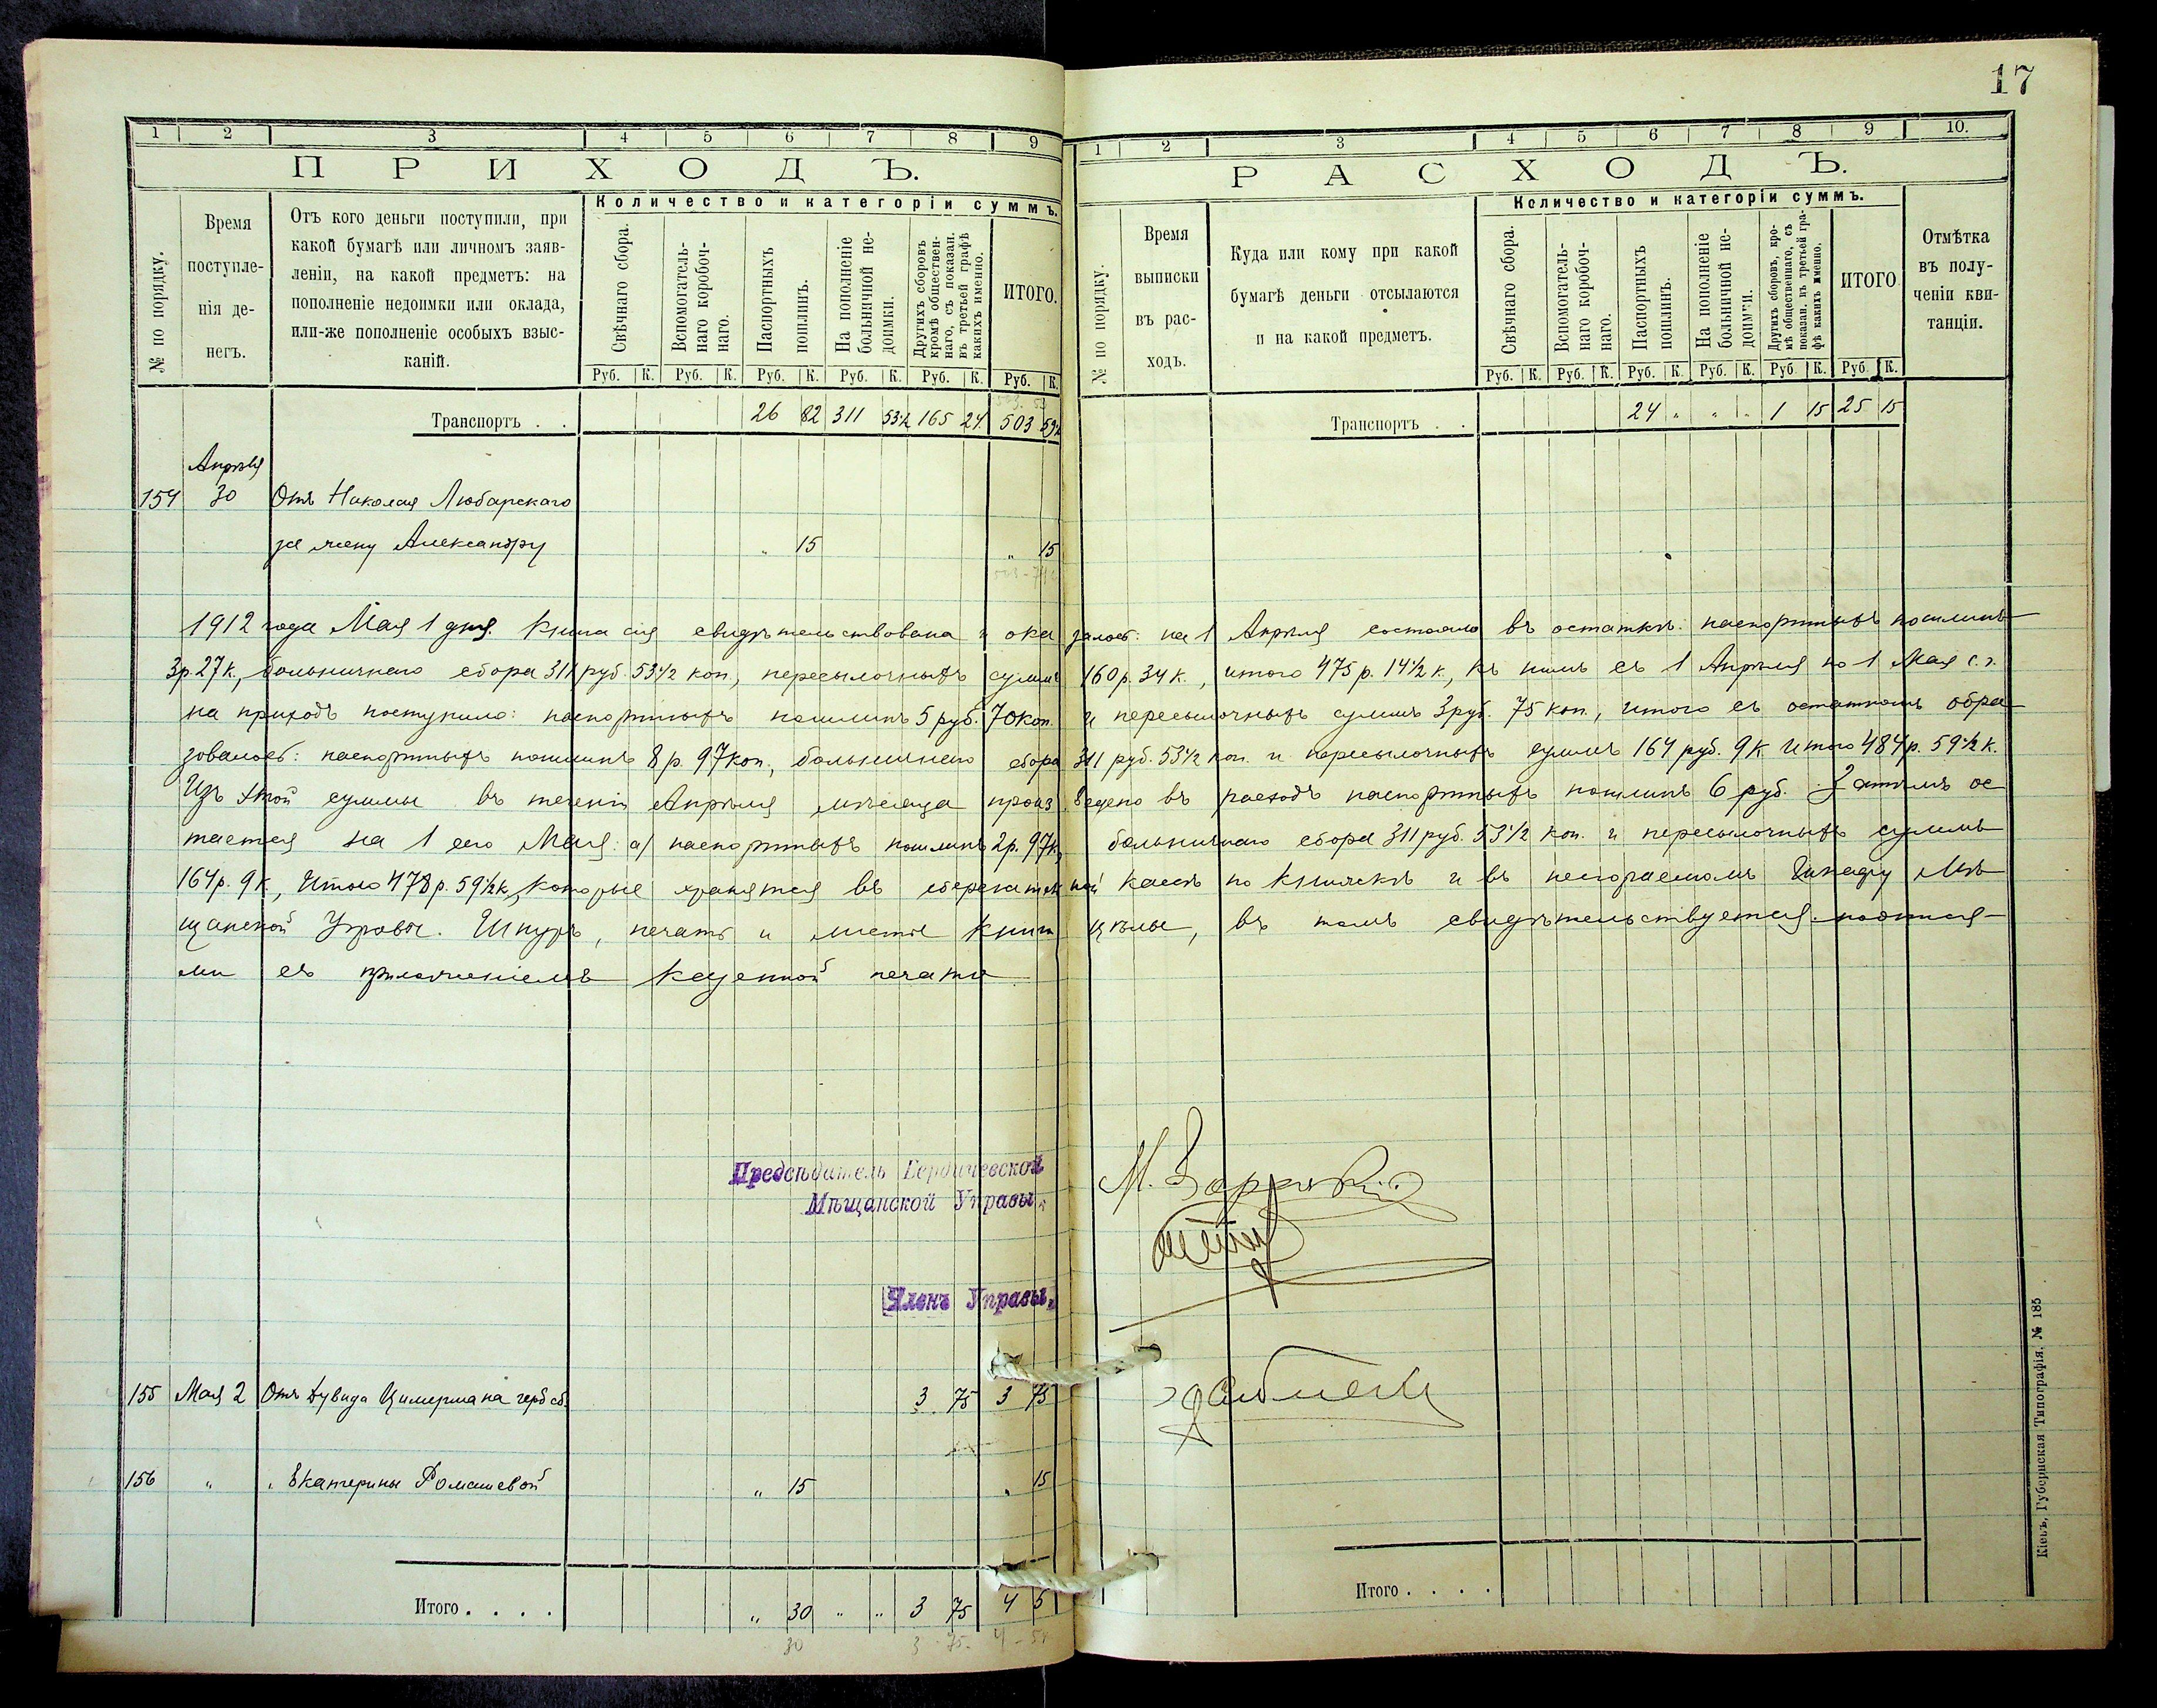 17
1 2 3 4 5 6 7 8 9
ПРИХОДЪ.
№ по порядку.
Время поступле-
нія де-
негъ.
Отъ кого деньги поступили, при
какой бумагѣ или личномъ заяв-
леніи, на какой предметъ: на
пополненіе недоимки или оклада,
или-же пополненіе особыхъ взыс-
каній.
Количество и категоріи суммъ.
Свѣчнаго сбора.
Вспомогатель-
наго коробоч-
наго.
Паспортныхъ
пошлинъ.
На пополненіе
больничной не-
доимки.
Другихъ сборовъ
кромѣ обществен-
наго, съ показан.
въ третьей графѣ
какихъ именно.
ИТОГО.
Руб. К. Руб. К. Руб. К. Руб. К. Руб. К. Руб. К.
Транспортъ . . 26 82 311 53½ 165 24 503 59½
Апрѣля
154 30 Отъ Николая Любарскаго
за жену Александру „ 15 „ 15
1 2 3 4 5 6 7 8 9 10.
РАСХОДЪ.
№ по порядку.
Время
выписки
въ рас-
ходъ.
Куда или кому при какой
бумагѣ деньги отсылаются
и на какой предметъ.
Количество и категоріи суммъ.
Свѣчнаго сбора.
Вспомогатель-
наго коробоч-
наго.
Паспортныхъ
пошлинъ.
На пополненіе
больничной не-
доимки.
Другихъ сборовъ, кро-
мѣ общественнаго, съ
показан. въ третьей гра-
фѣ какихъ именно.
ИТОГО
Отмѣтка
въ полу-
ченіи кви-
танціи.
Руб. К. Руб. К. Руб. К. Руб. К. Руб. К. Руб. К.
Транспортъ . . 24 „ „ „ 1 15 25 15
1912 года Мая 1 дня. Книга сія свидѣтельствована и ока залось: на 1 Апрѣля состояло въ остаткѣ: паспортныхъ пошлинъ
3 р. 27 к., больничнаго сбора 311 руб. 53½ коп., пересылочныхъ суммъ 160 р. 34 к., итого 475 р. 14½ к., къ нимъ съ 1 Апрѣля по 1 Мая с. г.
на приходъ поступило: паспортныхъ пошлинъ 5 руб. 70 коп. и пересылочныхъ суммъ 3 руб. 75 коп., итого съ остаткомъ обра
зовалось: паспортныхъ пошлинъ 8 р. 97 коп., больничнаго сбора 311 руб. 53½ коп. и пересылочныхъ суммъ 164 руб. 9 к Итого 484 р. 59½ к.
Изъ этой суммы въ теченіи Апрѣля мѣсяца произ ведено въ расходъ паспортныхъ пошлинъ 6 руб. Затѣмъ ос
тается на 1 ео Мая: а/ паспортныхъ пошлинъ 2 р. 97 к, больничнаго сбора 311 руб. 53½ коп. и пересылочныхъ суммъ
164 р. 9 к, Итого 478 р. 59½ к, которые хранятся въ сберегатель ной кассѣ по книжкѣ и въ несгораемомъ Шкафу Мѣ
щанской Управы. Шнуръ, печать и листы книги цѣлы, въ томъ свидѣтельствуется подпися-
ми съ приложеніемъ казенной печати
Предсѣдатель Бердичевской
Мѣщанской Управы,
Членъ Управы,
155 Мая 2 Отъ Дувида Цимермана герб сб. 3 75 3 75
156 „ „ Екатерины Ромашевой „ 15 „ 15
Итого . . . . „ 30 „ „ 3 75 4 5
30 3 75. 4 - 5
Итого . . . .
Кіевъ, Губернская Типографія. № 185